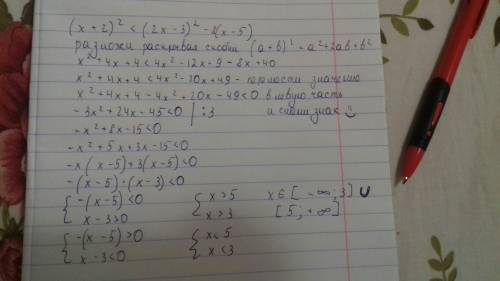 (x+2)² < (2x-3)² - 8(x-5)
разложи раскрывая скобки (a+b)² = a²+2ab+b²
x²+4x+4<4x²-12x+9-8x+40
x²+4x+4<4x²-20x+49 - значению
x²+4x+4-4x²+20x-49<0 в левую часть
-3x²+24x-45<0 | :3 и смени знак
-x²+8x-15<0
-x²+5x+3x-15<0
-x(x-5)+3(x-5)<0
-(x-5)·(x-3)<0
{ -(x-5)<0 { x>5 x∈[-∞;3] ∪
x-3>0 x>3 [5;+∞]
{ -(x-5)>0 { x<5
x-3<0 x<3